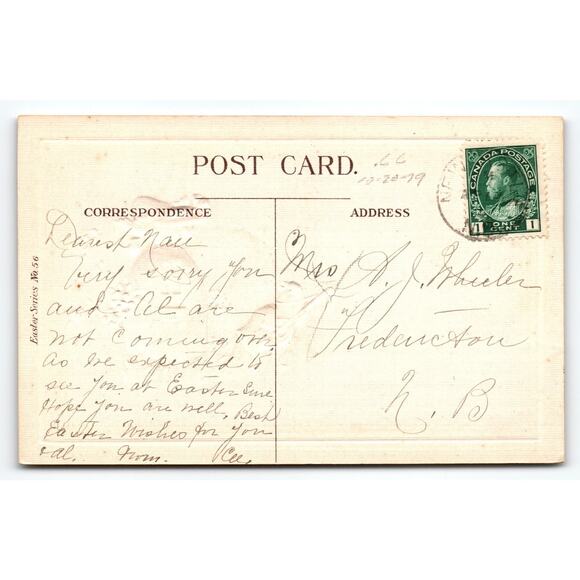 POST CARD.
.66
12-28-79
CORRESPONDENCE
ADDRESS
CANADA POSTAGE
1 ONE CENT 1
Easter Series No. 56
Dearest Nan
Very sorry you
and Al are
not coming over
as we expected to
see you at Easter time
Hope you are well. Best
Easter Wishes for you
& Al. from
Mrs A. J. Wheeler
Fredericton
N. B